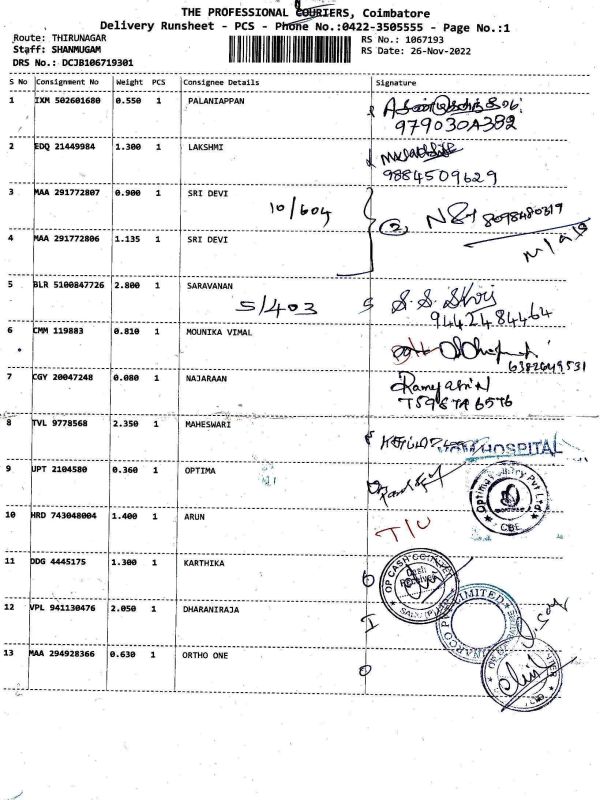 THE PROFESSIONAL COURIERS, Coimbatore
Delivery Runsheet - PCS - Phone No.:0422-3505555 - Page No.:1
Route: THIRUNAGAR
RS No.: 1067193
Staff: SHANMUGAM
RS Date: 26-Nov-2022
DRS No.: DCJB106719301
S No Consignment No Weight PCS Consignee Details Signature
1 IXM 502601680 0.550 1 PALANIAPPAN
979030A392
2 EDQ 21449984 1.300 1 LAKSHMI
9884509629
3 MAA 291772807 0.900 1 SRI DEVI
10/604
2
8098480319
4 MAA 291772806 1.135 1 SRI DEVI
5 BLR 5100847726 2.800 1 SARAVANAN
5/403 5
9442484464
6 CMM 119883 0.810 1 MOUNIKA VIMAL
7 CGY 20047248 0.080 1 NAJARAAN
8 TVL 9778568 2.350 1 MAHESWARI
HOSPITAL
9 UPT 2104580 0.360 1 OPTIMA
CBE
10 HRD 743048004 1.400 1 ARUN
T/U
11 DDG 4445175 1.300 1 KARTHIKA
OP CASH COUNTER
12 VPL 941130476 2.050 1 DHARANIRAJA
LIMITED
13 MAA 294928366 0.630 1 ORTHO ONE